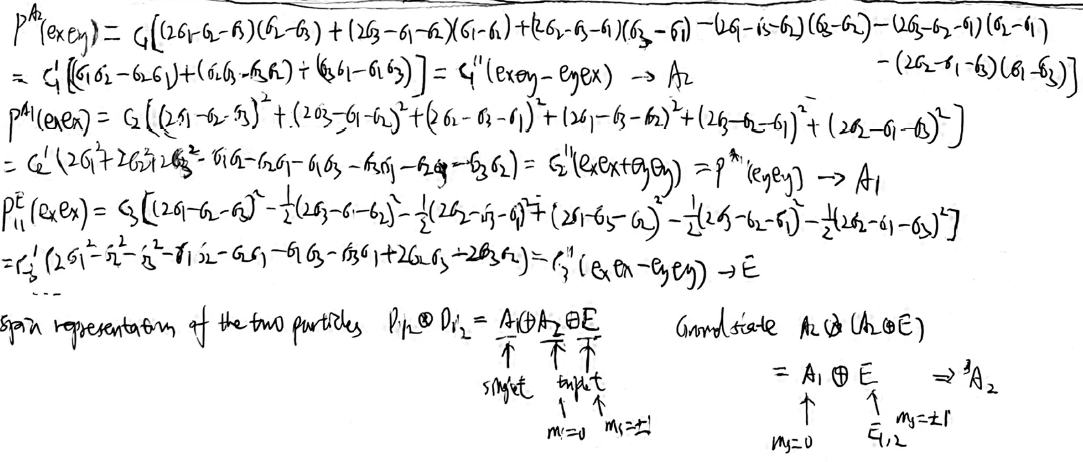 P^{A2}(exey) = C₁[(2σ₁-σ₂-σ₃)(σ₂-σ₃) + (2σ₃-σ₁-σ₂)(σ₁-σ₂) + (2σ₂-σ₃-σ₁)(σ₃-σ₁) - (2σ₁-σ₃-σ₂)(σ₃-σ₂) - (2σ₃-σ₂-σ₁)(σ₂-σ₁)
- (2σ₂-σ₁-σ₃)(σ₁-σ₃)]
= C₁'[(σ₁σ₂-σ₂σ₁)+(σ₂σ₃-σ₃σ₂)+(σ₃σ₁-σ₁σ₃)] = C₁''(exey-eyex) → A₂
P^{A1}(exex) = C₂[(2σ₁-σ₂-σ₃)²+(2σ₃-σ₁-σ₂)²+(2σ₂-σ₃-σ₁)²+(2σ₁-σ₃-σ₂)²+(2σ₃-σ₂-σ₁)²+(2σ₂-σ₁-σ₃)²]
= C₂'(2σ₁²+2σ₂²+2σ₃²-σ₁σ₂-σ₂σ₁-σ₁σ₃-σ₃σ₁-σ₂σ₃-σ₃σ₂) = C₂''(exex+eyey) = P^{A1}(eyey) → A₁
P₁₁^{E}(exex) = C₃[(2σ₁-σ₂-σ₃)²-½(2σ₃-σ₁-σ₂)²-½(2σ₂-σ₃-σ₁)²+(2σ₁-σ₃-σ₂)²-½(2σ₃-σ₂-σ₁)²-½(2σ₂-σ₁-σ₃)²]
= C₃'(2σ₁²-σ₂²-σ₃²-σ₁σ₂-σ₂σ₁-σ₁σ₃-σ₃σ₁+2σ₂σ₃+2σ₃σ₂) = C₃''(exex-eyey) → E
...
spin representation of the two particles D₁/₂⊗D₁/₂ = A₁⊕A₂⊕E Ground state A₂⊗(A₂⊕E)
singlet triplet = A₁ ⊕ E ⇒ ³A₂
ms=0 ms=±1 ms=0 E₁,₂ ms=±1